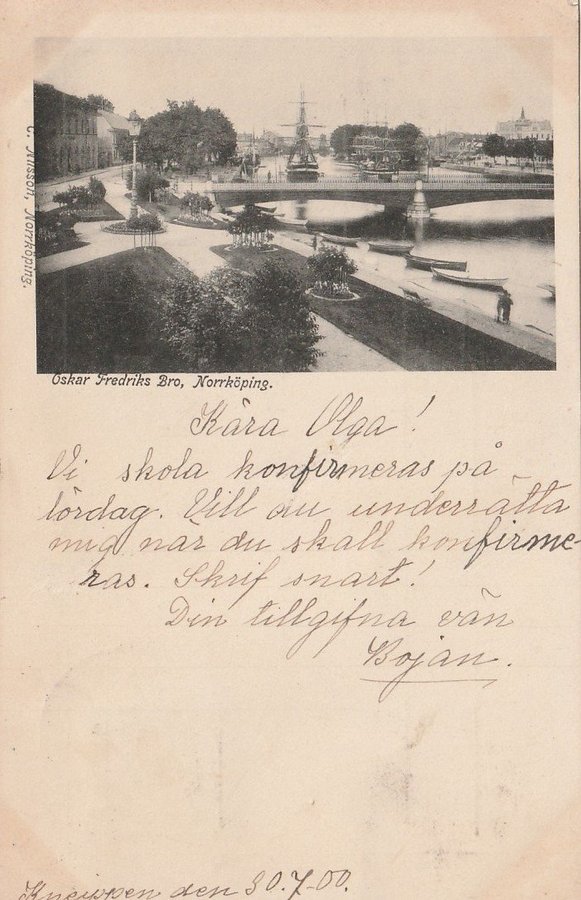 C. Nilsson, Norrköping.
Oskar Fredriks Bro, Norrköping.
Kära Olga!
Vi skola konfirmeras på
lördag. Vill du underrätta
mig när du skall konfirme-
ras. Skrif snart!
Din tillgifna vän
Bojan.
Kneippen den 30.7-00.